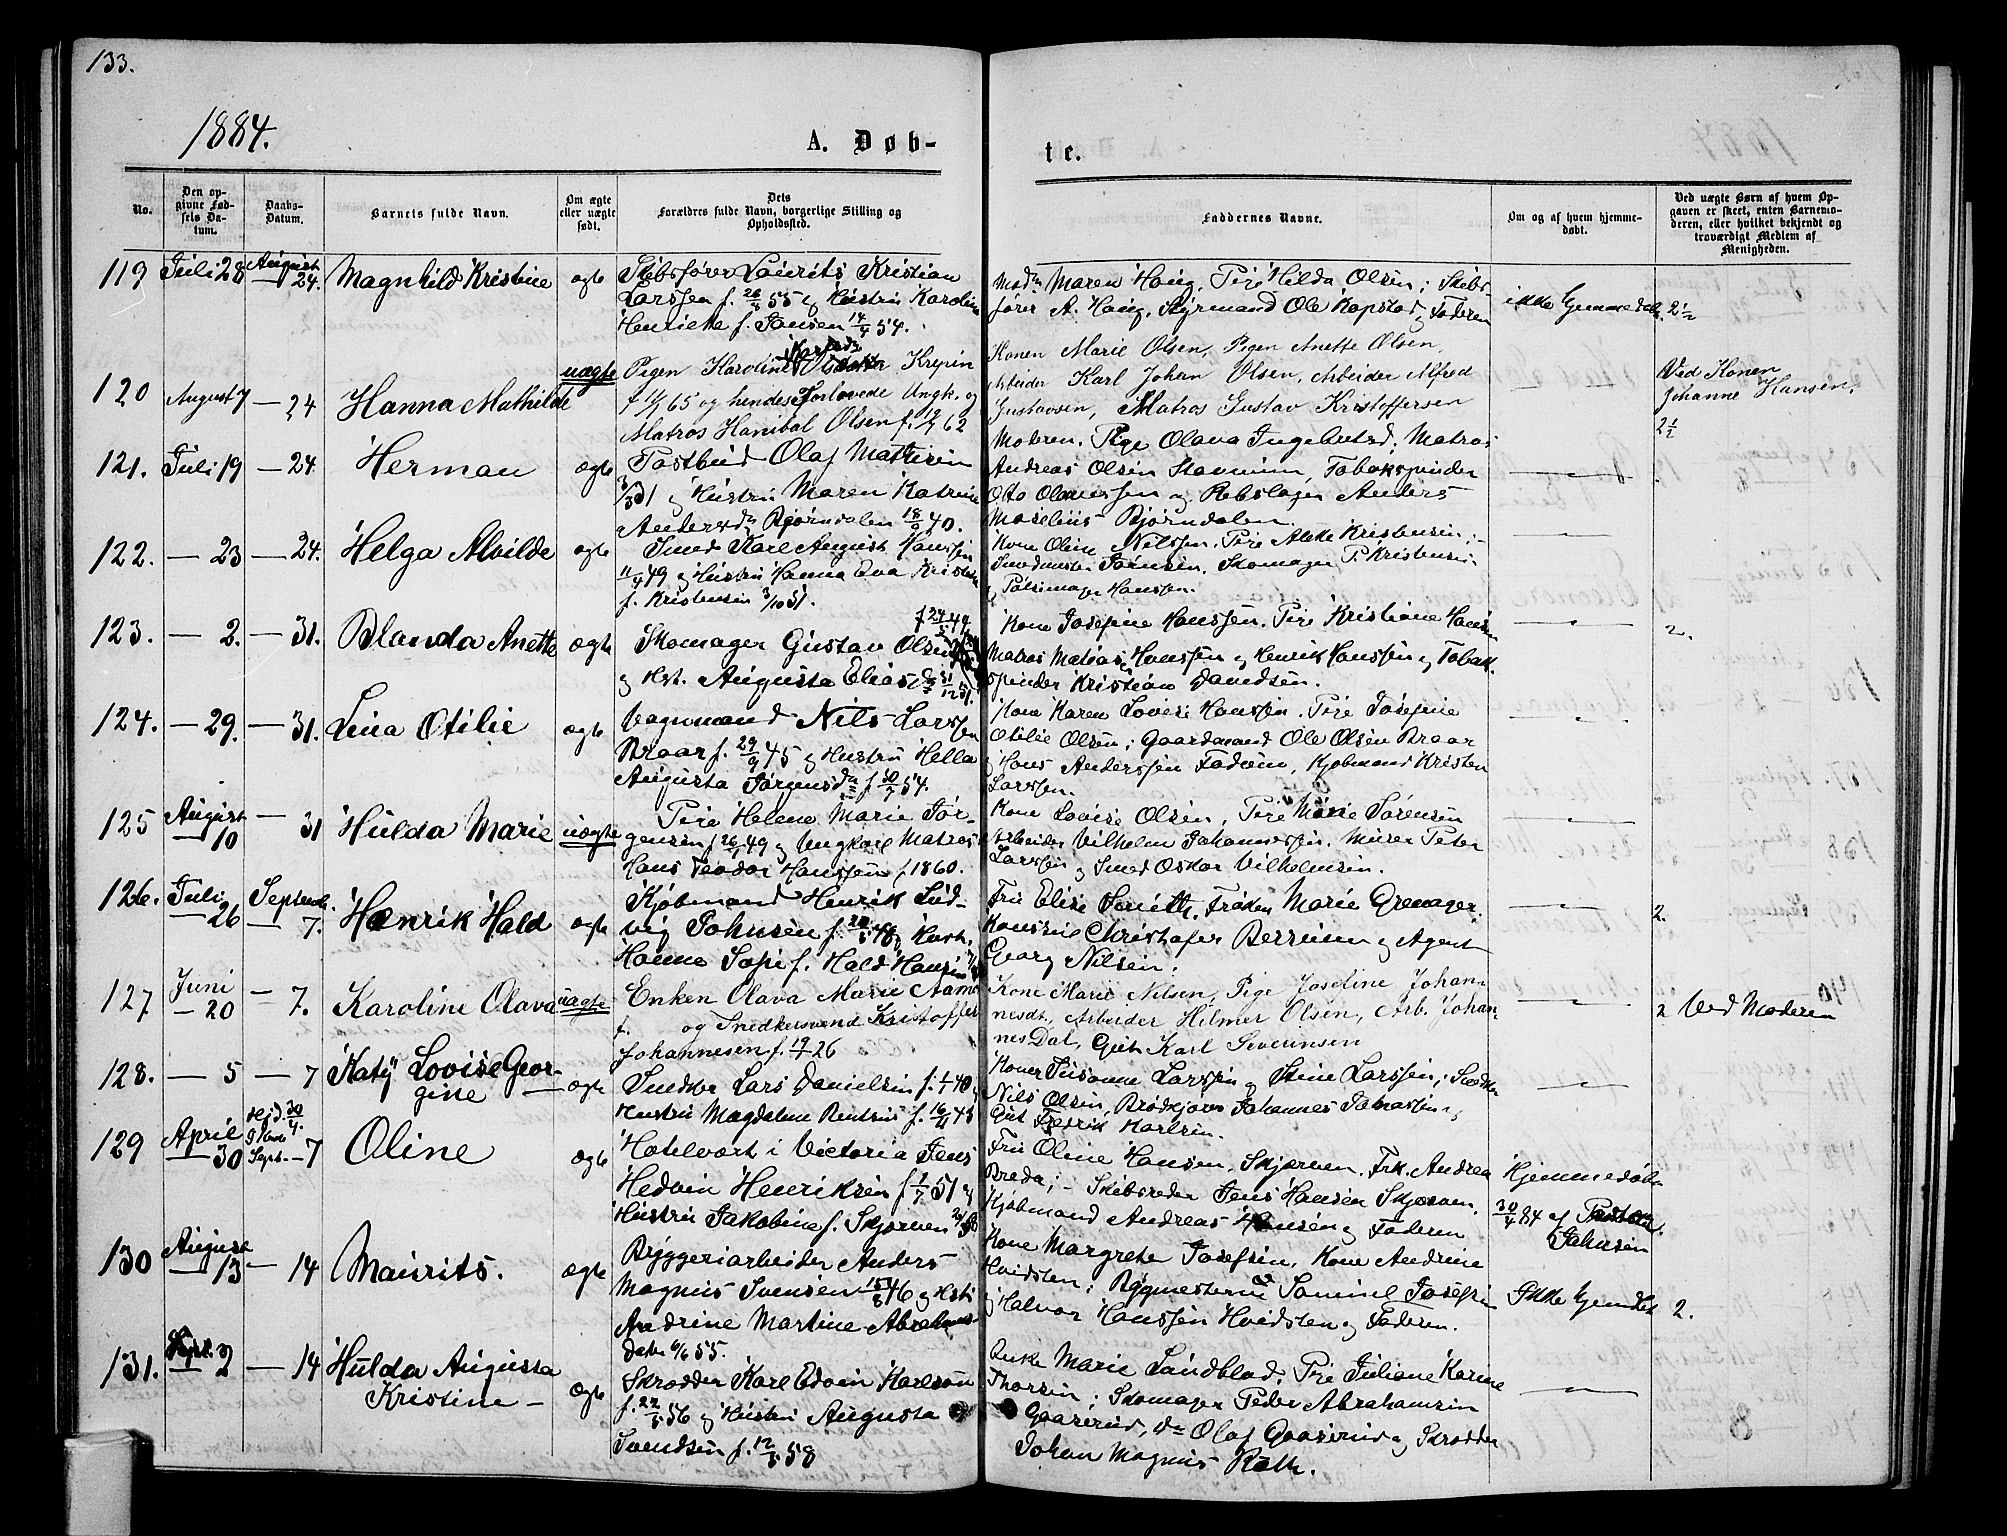 133.
1884.
A. Døb-
te.
No.
Den op-
givne Fød-
sels Da-
tum.
Daabs-
Datum.
Barnets fulde Navn.
Om ægte
eller uægte
født.
Dets
Forældres fulde Navn, borgerlige Stilling og
Opholdssted.
Faddernes Navne.
Om og af hvem hjemme-
døbt.
Ved uægte Børn af hvem Op-
gaven er skeet, enten Barnemo-
deren, eller hvilket bekjendt og
troværdigt Medlem af
Menigheden.
119 Juli 28 August 24. Magnhild Kristine ægte
Skibsfører Laurits Kristian
Larssen f. 26/ 55 og Hustru Karoline
Henriette f. Jansen 14/9 54.
Madm Maren Haug, Pige Hilda Olsen; Skibs-
fører A. Haug, Styrmand Ole Kopstad og Faderen
ikke hjemmedøbt. 2½
120 August 7 — 24 Hanna Mathilde uægte
Pigen Karoline Krepin
f 11/7 65 og hendes Forlovede Ungk. og
Matros Hanibal Olsen f. 12/7 62
Konen Marie Olsen, Pigen Anette Olsen,
Arbeider Karl Johan Olsen, Arbeider Alfred
Gustavsen, Matros Gustav Kristoffersen
—
Ved Konen
Johanne Hansen.
121. Juli 19 — 24. Herman ægte
Postbud Olaf Mathisen
3/3 51 og Hustru Maren Katrine
Andersdn Bjørndalen 18/9 40.
Moderen, Pige Olava Ingebretsd, Matros
Andreas Olsen, Tobakspinder
Otto og Rebslager Anders
Maselius Bjørndalen.
— 2½
122. — 23 — 24. Helga Alvilde ægte
Smed Karl August Hanssen
11/4 49 og Hustru Hanna Eva
f. Kristensen 3/10 51.
Kone Oline Nilssen, Pige Kristensen;-
Smedmester Jansen, Skomager P. Kristensen
og Pølsemager Hanssen.
—
123. — 2. — 31. Blanda Anette ægte
Skomager Gustav Olsen f 24/5 49
og Hst. Augusta Eliasdn 31/12 51.
Kone Josefine Hanssen, Pige Kristiane Hansen
Matros Matias Hanssen og Henrik Hanssen og Tobak-
spinder Kristian Davidsen.
— 2.
124. — 29. — 31. Lina Otilie ægte
Vognmand Nils Larssen
Braar f. 29/9 45 og Hustru Hella
Augusta Jørgensdn f 30/7 54.
Kone Karen Lovise Hanssen, Pige Josefine
Otilie Olsen; Gaardmand Ole Olsen Braar
og Hans Anderssen Fadum, Kjøbmand Kristen
Larssen.
—
125 August — 10 — 31 Hulda Marie uægte
Pige Helene Marie Jør-
gensen f 26/ 49 og Ungkarl Matros
Hans Teodor Hanssen f. 1860.
Kone Lovise Olsen, Pige Marie Sørensen
Arbeider Vilhelm Johannessen, Murer Peter
Larssen og Smed Oskar Vilhelmsen.
—
126. Juli — 26 September — 7. Henrik Hald ægte
Kjøbmand Henrik Lud-
vig Johnsen f. 20/5 48, Hust.
Hanne Sofie f. Hald Hansen
Fru Elise Smith, Frøken Marie Grenager.
Konsul Christofer Berrum og Agent
Georg Nilsen.
— 2.
127 Juni — 20 — 7. Karoline Olava uægte
Enken Olava Marie
f. og Snedkersvend Kristoffer
Johannesen f. 19/7 26
Kone Marie Nilsen, Pige Josefine Johan-
nesdt, Arbeider Hilmer Olsen, Arb. Johan-
nes Dal, Gut Karl Severinsen
— 2
Ved Moderen
128. — 5 — 7 Katy Lovise Geor-
gine — ægte
Snedker Lars Danielsen f. 1/1 40,
Hustru Magdalene Berntsen f. 16/11 43
Koner Susanne Larssen og Stine Larssen; Snedker
Nils Olsen, Brødkjører Johannes
Gut Fredrik Karlsen.
—
129 April — 30 Hjd. 30/4. Sept. — 7 Oline ægte
Hotelvært i Victoria Jens
Hedvin Henriksen f 1/7 51 og
Hustru Jakobine f. Skjærven
Fru Oline Hansen, Skjærven, Frk. Andrea
Breda; - Skibsreder Jens Hansen Skjærven,
Kjøbmand Andreas Hansen og Faderen
Hjemmedøbt
30/4 84 af
Johnsen
130 August — 13 — 14 Maurits. ægte
Bryggeriarbeider Anders
Magnus Svensen 15/8 46 og Hst.
Andrine Martine Abrahams-
Datter 6/6 55.
Kone Margrete Josefsen, Kone Andrine
Hvidsten; Samuel Josefsen
og Halvor Hanssen Hvidsten og Faderen.
Ikke hjemdøbt 2.
131. Sept. — 2 — 14 Hulda Augusta
Kristine — ægte
Skrædder Karl Edvin Karlsson
f. 22/ 56 og Hustru Augusta
Svendsen f. 12/3 58
Enke Marie Sandblad, Pige Juliane Karine
Thorsen; Skomager Peder Abrahamsen
Gaaserud, Dn Olaf Gaaserud og Skrædder
Johan Magnus Roth.
—